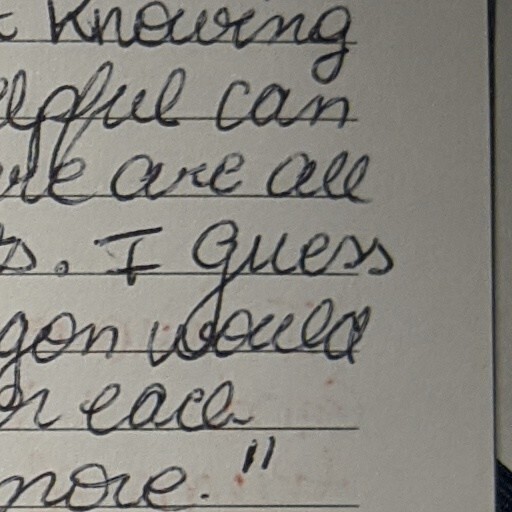 knowing
elpful can
are all
s. I guess
gon would
each
more."